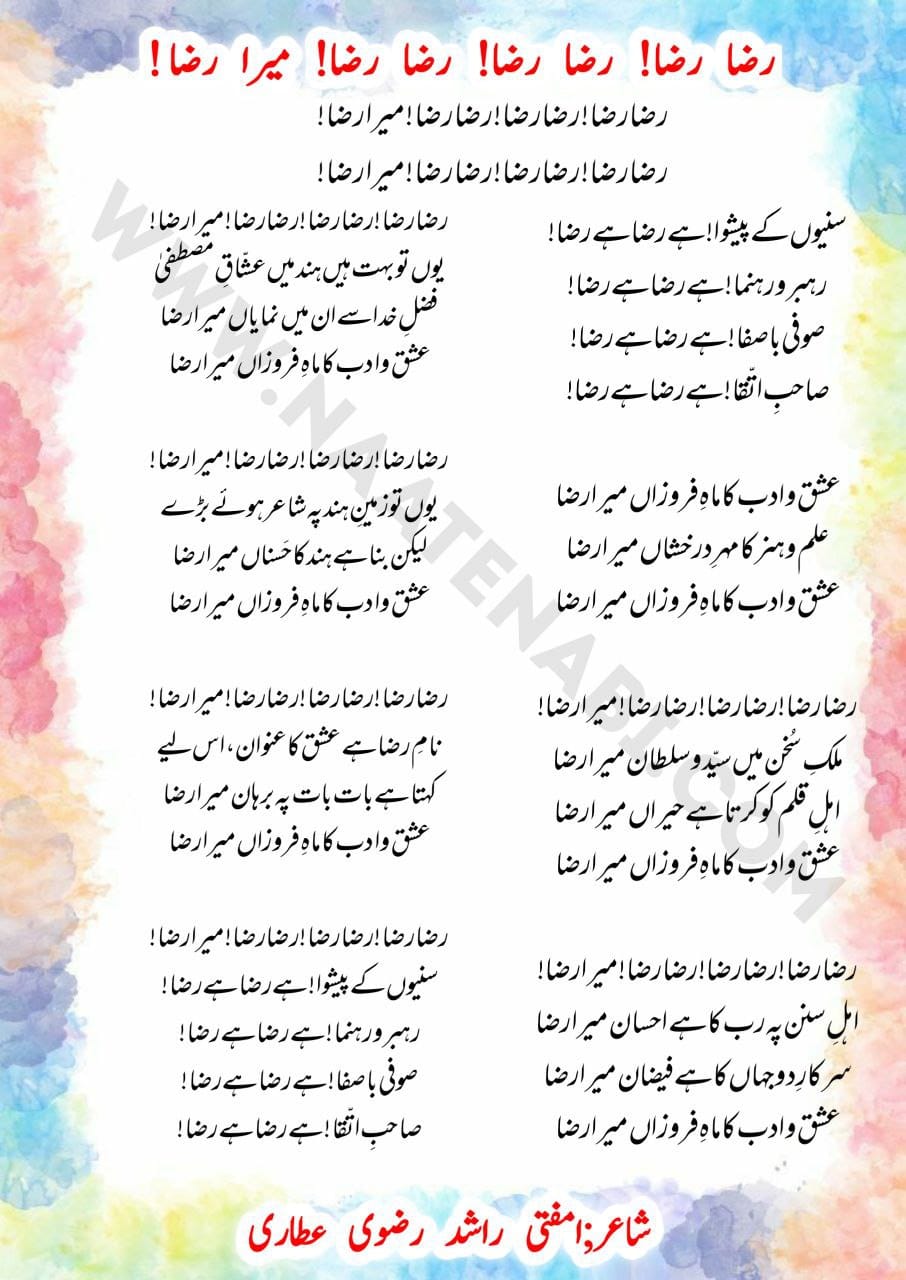 رضا رضا! رضا رضا! رضا رضا! میرا رضا!
رضا رضا! رضا رضا! رضا رضا! میرا رضا!
رضا رضا! رضا رضا! رضا رضا! میرا رضا!
سنیوں کے پیشوا! ہے رضا ہے رضا!
رہبر و رہنما! ہے رضا ہے رضا!
صوفی باصفا! ہے رضا ہے رضا!
صاحبِ اتّقا! ہے رضا ہے رضا!
عشق و ادب کا ماہِ فروزاں میرا رضا
علم و ہنر کا مہرِ درخشاں میرا رضا
عشق و ادب کا ماہِ فروزاں میرا رضا
رضا رضا! رضا رضا! رضا رضا! میرا رضا!
ملکِ سُخن میں سیّد و سلطان میرا رضا
اہلِ قلم کو کرتا ہے حیراں میرا رضا
عشق و ادب کا ماہِ فروزاں میرا رضا
رضا رضا! رضا رضا! رضا رضا! میرا رضا!
اہلِ سنن پہ رب کا ہے احسان میرا رضا
سرکارِ دو جہاں کا ہے فیضان میرا رضا
عشق و ادب کا ماہِ فروزاں میرا رضا
رضا رضا! رضا رضا! رضا رضا! میرا رضا!
یوں تو بہت ہیں ہند میں عشّاقِ مصطفیٰ
فضلِ خدا سے ان میں نمایاں میرا رضا
عشق و ادب کا ماہِ فروزاں میرا رضا
رضا رضا! رضا رضا! رضا رضا! میرا رضا!
یوں تو زمینِ ہند پہ شاعر ہوئے بڑے
لیکن بنا ہے ہند کا حَسناں میرا رضا
عشق و ادب کا ماہِ فروزاں میرا رضا
رضا رضا! رضا رضا! رضا رضا! میرا رضا!
نامِ رضا ہے عشق کا عنوان، اس لیے
کہتا ہے بات بات پہ برہان میرا رضا
عشق و ادب کا ماہِ فروزاں میرا رضا
رضا رضا! رضا رضا! رضا رضا! میرا رضا!
سنیوں کے پیشوا! ہے رضا ہے رضا!
رہبر و رہنما! ہے رضا ہے رضا!
صوفی باصفا! ہے رضا ہے رضا!
صاحبِ اتّقا! ہے رضا ہے رضا!
شاعر;امفتی راشد رضوی عطاری
WWW.NAATENABI.COM